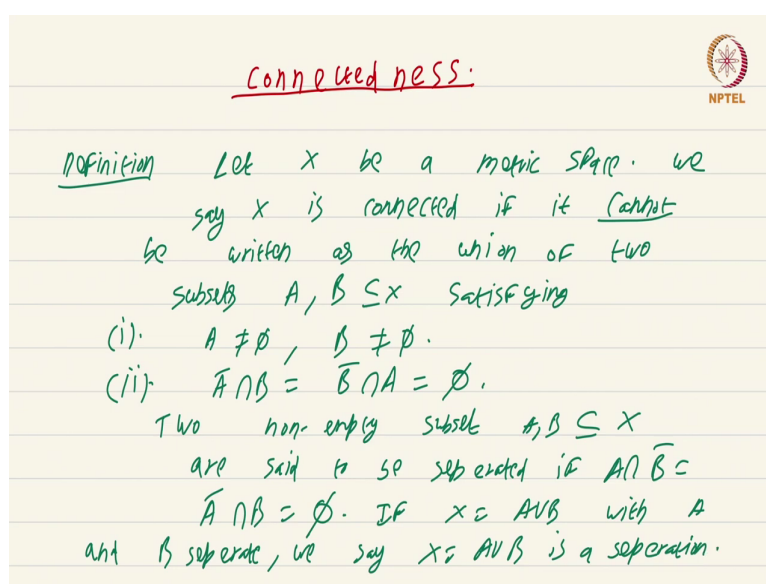 Connectedness.
NPTEL
Definition Let X be a metric space. we
say X is connected if it cannot
be written as the union of two
subsets A, B ⊆ X satisfying
(i). A ≠ ∅, B ≠ ∅.
(ii). A̅ ∩ B = B̅ ∩ A = ∅.
Two non-empty subset A, B ⊆ X
are said to be seperated if A ∩ B̅ =
A̅ ∩ B = ∅. If X = A ∪ B with A
and B seperate, we say X = A ∪ B is a seperation.